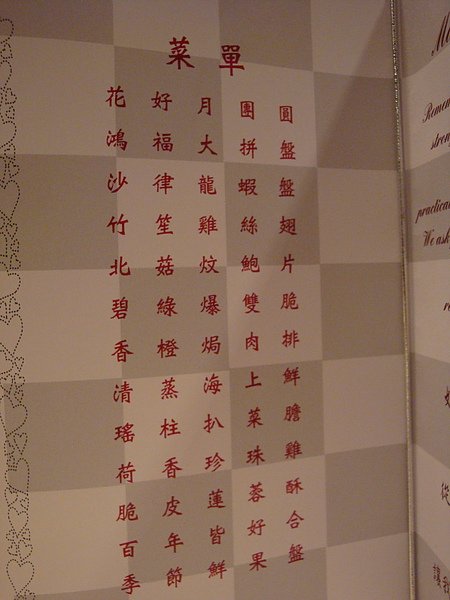 菜單
花好月團圓
鴻福大拼盤
沙律龍蝦盤
竹笙雞絲翅
北菇炆鮑片
碧綠爆雙脆
香橙焗肉排
清蒸海上鮮
瑤柱扒菜膽
荷香珍珠雞
脆皮蓮蓉酥
百年皆好合
季節鮮果盤
We ask
從